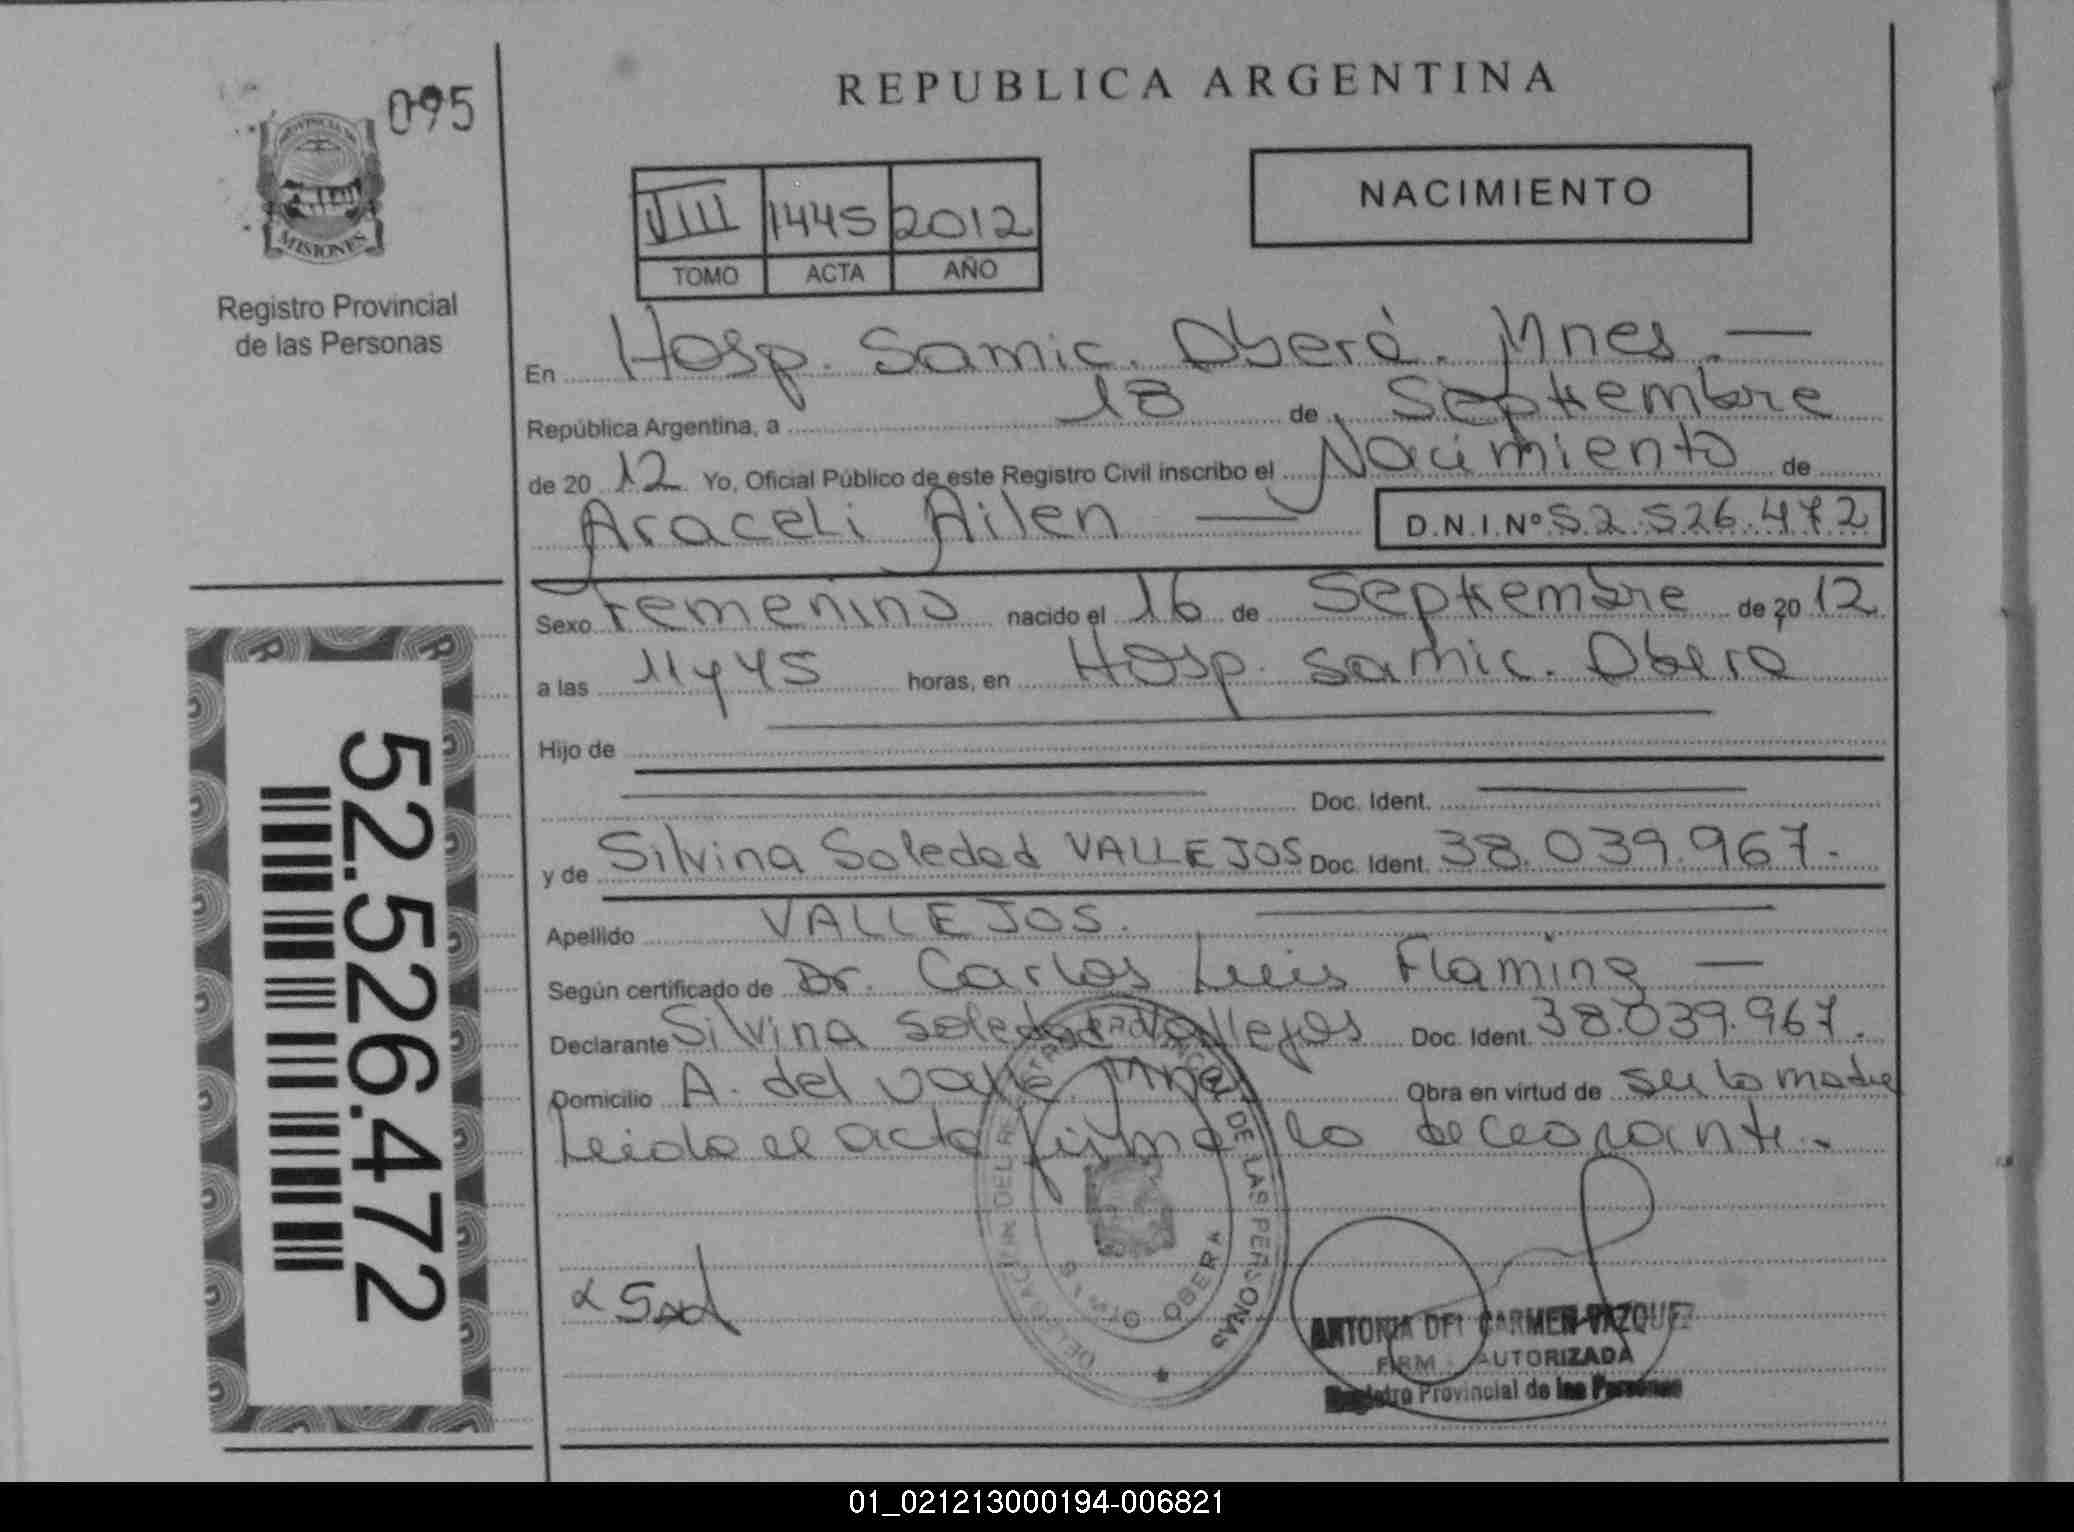 095
PROVINCIA DE
MISIONES
Registro Provincial
de las Personas
REPUBLICA ARGENTINA
VIII 1445 2012
TOMO ACTA AÑO
NACIMIENTO
En Hosp. Samic. Oberá. Mnes. —
República Argentina, a 18 de Septiembre
de 20 12 Yo, Oficial Público de este Registro Civil inscribo el Nacimiento de
Araceli Ailen — D.N.I.Nº 52.526.472
Sexo Femenino nacido el 16 de Septiembre de 20 12
a las 11 y 45 horas, en Hosp. Samic. Oberá
Hijo de
Doc. Ident.
y de Silvina Soledad VALLEJOS Doc. Ident. 38.039.967.
Apellido VALLEJOS.
Según certificado de Dr. Carlos Luis Flamina —
Declarante Silvina Soledad Vallejos Doc. Ident. 38.039.967.
Domicilio A. del Valle. Mnes Obra en virtud de ser la madre
Leida el acta firma la declarante.
52.526.472
DELEGACION DEL REGISTRO PROVINCIAL DE LAS PERSONAS
OBERA
ANTONIA DEL CARMEN VAZQUEZ
FIRMA AUTORIZADA
Registro Provincial de las Personas
01_021213000194-006821